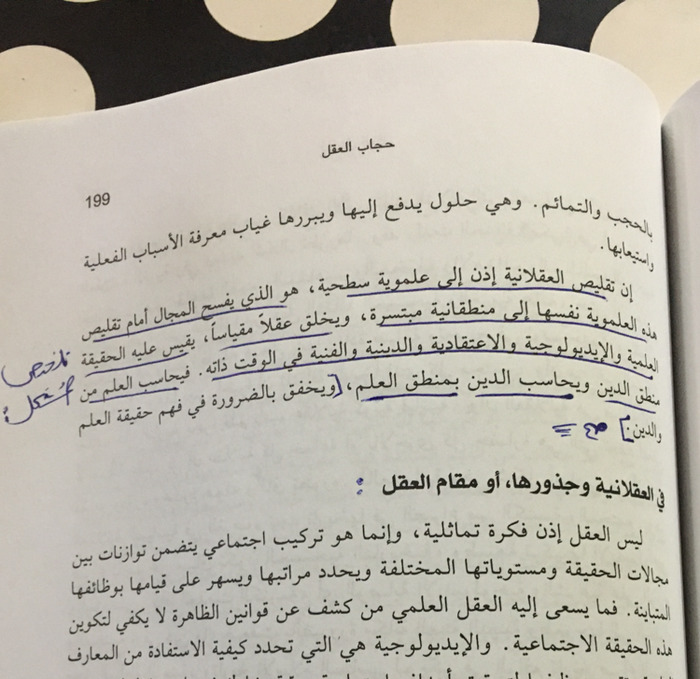 حجاب العقل
199
بالحجب والتمائم. وهي حلول يدفع إليها ويبررها غياب معرفة الأسباب الفعلية
واستيعابها.
إن تقليص العقلانية إذن إلى علموية سطحية، هو الذي يفسح المجال أمام تقليص
هذه العلموية نفسها إلى منطقانية مبتسرة، ويخلق عقلاً مقياساً، يقيس عليه الحقيقة
العلمية والإيديولوجية والاعتقادية والدينية والفنية في الوقت ذاته. فيحاسب العلم من
منطق الدين ويحاسب الدين بمنطق العلم، [ويخفق بالضرورة في فهم حقيقة العلم
والدين.]
في العقلانية وجذورها، أو مقام العقل :
ليس العقل إذن فكرة تماثلية، وإنما هو تركيب اجتماعي يتضمن توازنات بين
مجالات الحقيقة ومستوياتها المختلفة ويحدد مراتبها ويسهر على قيامها بوظائفها
المتباينة. فما يسعى إليه العقل العلمي من كشف عن قوانين الظاهرة لا يكفي لتكوين
هذه الحقيقة الاجتماعية. والإيديولوجية هي التي تحدد كيفية الاستفادة من المعارف